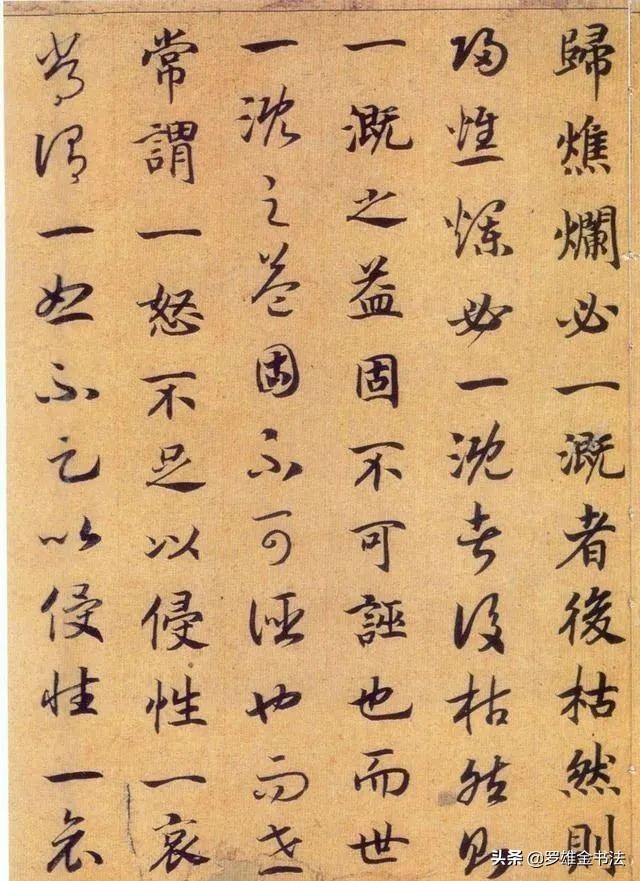 歸燋爛必一溉者後枯然則
歸燋爛必一溉者後枯然則
一溉之益固不可誣也而世
一溉之益固不可誣也而世
常謂一怒不足以侵性一哀
常謂一怒不足以侵性一哀
头条 @罗雄金书法